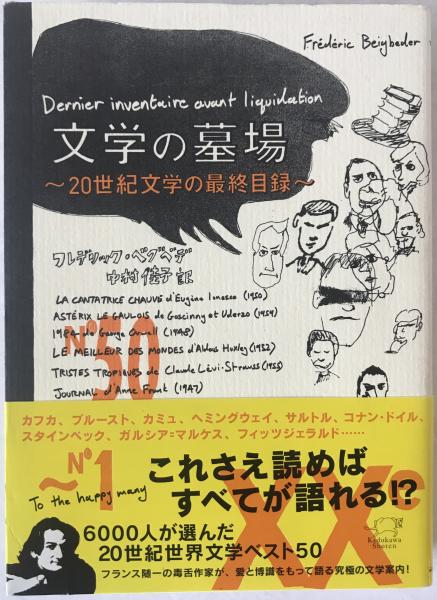 Frédéric Beigbeder
Dernier inventaire avant liquidation
文学の墓場
〜20世紀文学の最終目録〜
フレデリック・ベグベデ
中村佳子 訳
LA CANTATRICE CHAUVE d'Eugène Ionesco (1950)
ASTÉRIX LE GAULOIS de Goscinny et Uderzo (1959)
1984 de George Orwell (1948)
LE MEILLEUR DES MONDES d'Aldous Huxley (1932)
TRISTES TROPIQUES de Claude Lévi-Strauss (1955)
JOURNAL d'Anne Frank (1947)
Nº50
カフカ、プルースト、カミュ、ヘミングウェイ、サルトル、コナン・ドイル、
スタインベック、ガルシア=マルケス、フィッツジェラルド……
〜Nº1
XXe
これさえ読めば
すべてが語れる!?
To the happy many
6000人が選んだ
20世紀世界文学ベスト50
フランス随一の毒舌作家が、愛と博識をもって語る究極の文学案内!
Kadokawa
Shoten